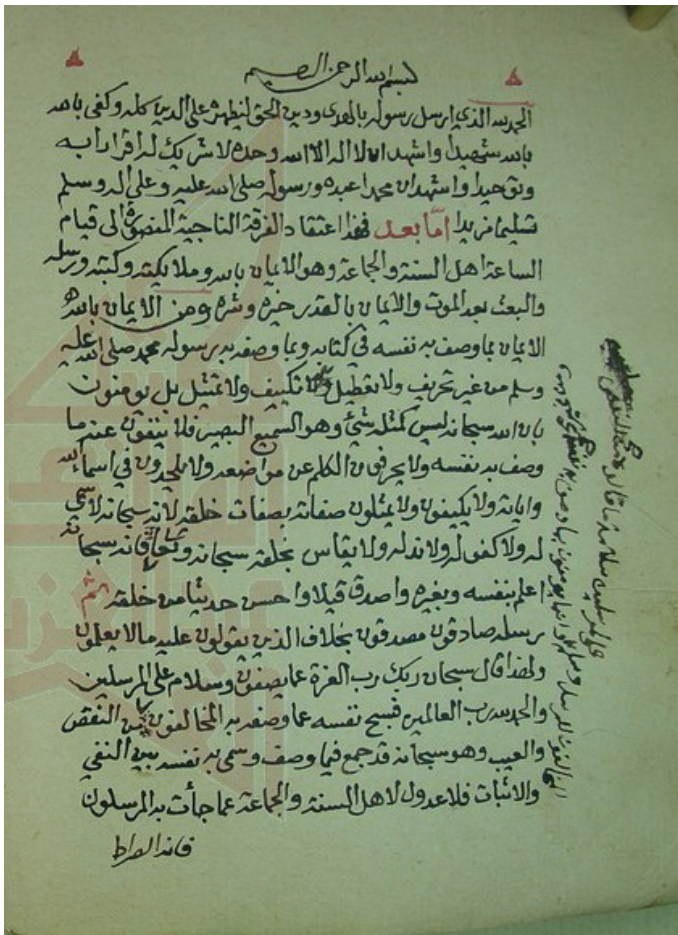 بسم الله الرحمن الرحيم
الحمد لله الذي ارسل رسوله بالهدى ودين الحق ليظهره على الدين كله وكفى بالله
بالله شهيدا واشهد ان لا اله الا الله وحده لا شريك له اقرارا به
وتوحيدا واشهد ان محمدا عبده ورسوله صلى الله عليه وعلى اله وسلم
تسليما مزيدا اما بعد فهذا اعتقاد الفرقة الناجية المنصورة الى قيام
الساعة اهل السنة والجماعة وهو الايمان بالله وملايكته وكتبه ورسله
والبعث بعد الموت والايمان بالقدر خيره وشره ومن الايمان بالله
الايمان بما وصف به نفسه في كتابه وبما وصفه به رسوله محمد صلى الله عليه
وسلم من غير تحريف ولا تعطيل ولا تكييف ولا تمثيل بل يومنون
بان الله سبحانه ليس كمثله شيء وهو السميع البصير فلا ينفون عنه ما
وصف به نفسه ولا يحرفون الكلم عن مواضعه ولا يلحدون في اسماء الله
واياته ولا يكيفون ولا يمثلون صفاته بصفات خلقه لانه سبحانه لا سمي
له ولا كفو له ولا ند له ولا يقاس بخلقه سبحانه وتعالى فانه سبحانه
اعلم بنفسه وبغيره واصدق قيلا واحسن حديثا من خلقه ثم
رسله صادقون مصدقون بخلاف الذين يقولون عليه ما لا يعلمون
ولهذا قال سبحان ربك رب العزة عما يصفون وسلام على المرسلين
والحمد لله رب العالمين فسبح نفسه عما وصفه به المخالفون من النقص
والعيب وهو سبحانه قد جمع فيما وصف وسمى به نفسه بين النفي
والاثبات فلا عدول لاهل السنة والجماعة عما جأت به المرسلون
فانه الصراط
المخالفون للرسل وسلم
على المرسلين لسلامة ما قالوه من النقص